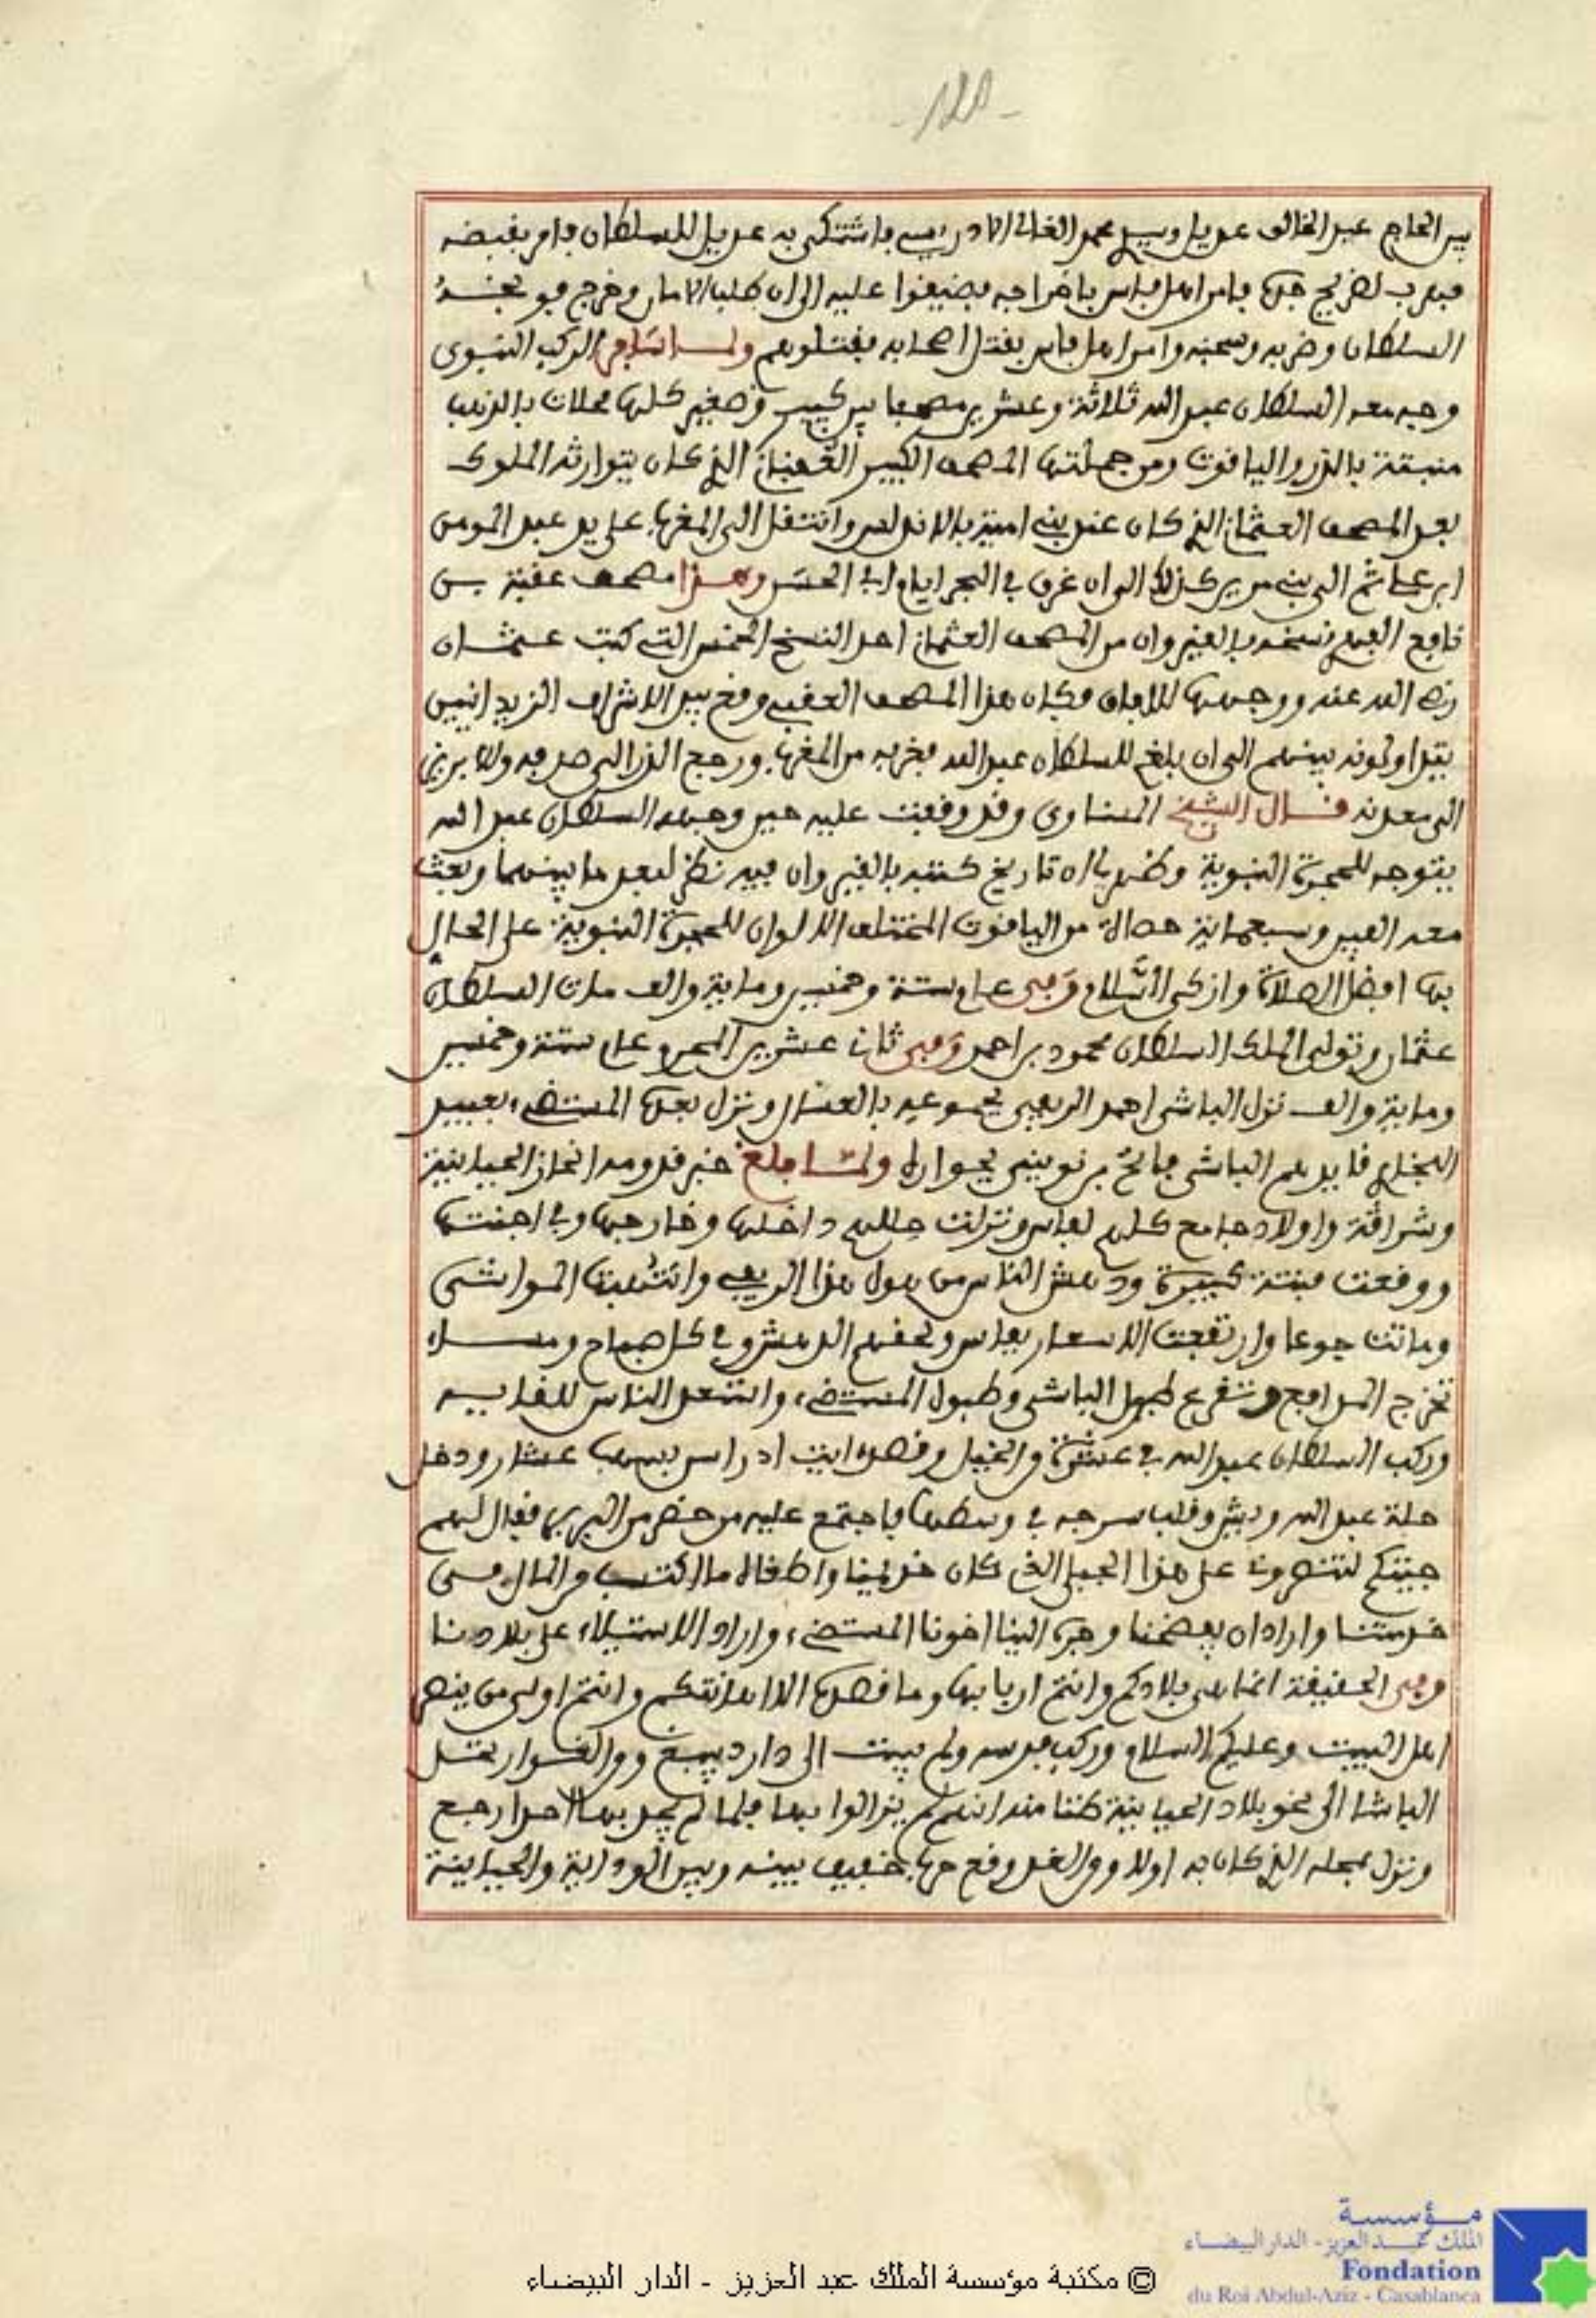 -125-
بين الحاج عبد الخالق عديل وسيدي محمد الغالي الادريسي فاشتكى به عديل للسلطان فامر بقبضه
فهرب لضريح جدها فامر اهل فاس باخراجه فضيقوا عليه الى ان طلب الامان وخرج
السلطان وضربه وسجنه وامر اهل فاس بقتل اصحابه فقتلوهم ولما سافر الركب النبوي
وجه معه السلطان عبد الله ثلاثة وعشرين مصحفا بين كبير وصغير كلها محلات بالذهب
منبتة بالدر والياقوت ومن جملتها المصحف الكبير العقباني الذي كان يتوارثه الملوك
بعد المصحف العثماني الذي كان عند بني امية بالاندلس وانتقل الى المغرب على يد عبد المومن
ابن عشاثم الى بني مرين كذلك الى ان غرق في البحر ايام ابي الحسن وهذا مصحف عقبة بن
نافع الفهري نسخه بالقيروان من المصحف العثماني احد النسخ الخمس التي كتب عثمان
رضي الله عنه ووجهها للافاق وكان هذا المصحف العقبي وقع بيد الاشراف الزيدانيين
يتداولونه بينهم الى ان بلغ للسلطان عبد الله فغربه من المغرب ورجع الدر الى صدفه والابريز
الى معدنه قال الشيخ المسناوي وقد وقفت عليه حين وجهه السلطان عبد الله
يتوجه للحجرة النبوية وظهر لي ان تاريخ كتبه بالقيروان فيه نظر لبعد ما بينهما وبعث
معه الفين وسبعماية حصاة من الياقوت المختلف الالوان للحجرة النبوية على الحال
بها افضل الصلاة وازكى السلام وفي عام ستة وخمسين وماية والف مات السلطان
عثمان وتولى الملك السلطان محمود بن احمد وفي ثاني عشرين المحرم عام ستة وخمسين
وماية والف نزل الباشى احمد الريفي بجموعه بالعسال ونزل بعدها المستضيء بعبيد
البخاري قايدهم الباشى فاتح بن نويني بجواره ولما بلغ خبر قدومه انحاز الحياينية
وشراقة واولاد جامع كلهم لفاس ونزلت حللهم داخلها وخارجها وفي اجنتها
ووقعت فتنة كبيرة ودهش الناس من هول هذا الريفي وانتهبت المواشى
وماتت جوعا وارتفعت الاسعار بفاس ولحقهم الدهش وفي كل صباح ومساء
تخرج المدافع وتقرع طبول الباشى وطبول المستضيء واشتعل الناس للقايه
وركب السلطان عبد الله في عشرة من الخيل وقصد ايت ادراسن بسهب عشار ودخل
حلة عبد الله ويشي وقلب سرجه في وسطها فاجتمع عليه من حضر من البربر فقال لهم
جيتكم لتنصروني على هذا الجبلي الذي كان خديمنا واطغاه ما اكتسب من المال من
خدمتنا واراد ان يفضحنا وجر الينا اخونا المستضيء واراد الاستيلاء على بلادنا
وفي الحقيقة انما هي بلادكم وانتم اربابها وما قصدها الا اهانتكم وانتم اولى من ينصر
اهل البيت وعليكم السلام وركب فرسه ولم يبت الى دار دبيبغ ومن الغد سار بقتل
الباشا الى نحو بلاد الحياينة ظنا منه انهم لم يزالوا بها فلما لم يجد بها احدا رجع
ونزل بمحله الذي كان به اولا ومن الغد وقع حرب خفيف بينه وبين الوداية والحياينة
مؤسسة
الملك عبد العزيز - الدار البيضاء
Fondation
du Roi Abdul-Aziz - Casablanca
© مكتبة مؤسسة الملك عبد العزيز - الدار البيضاء